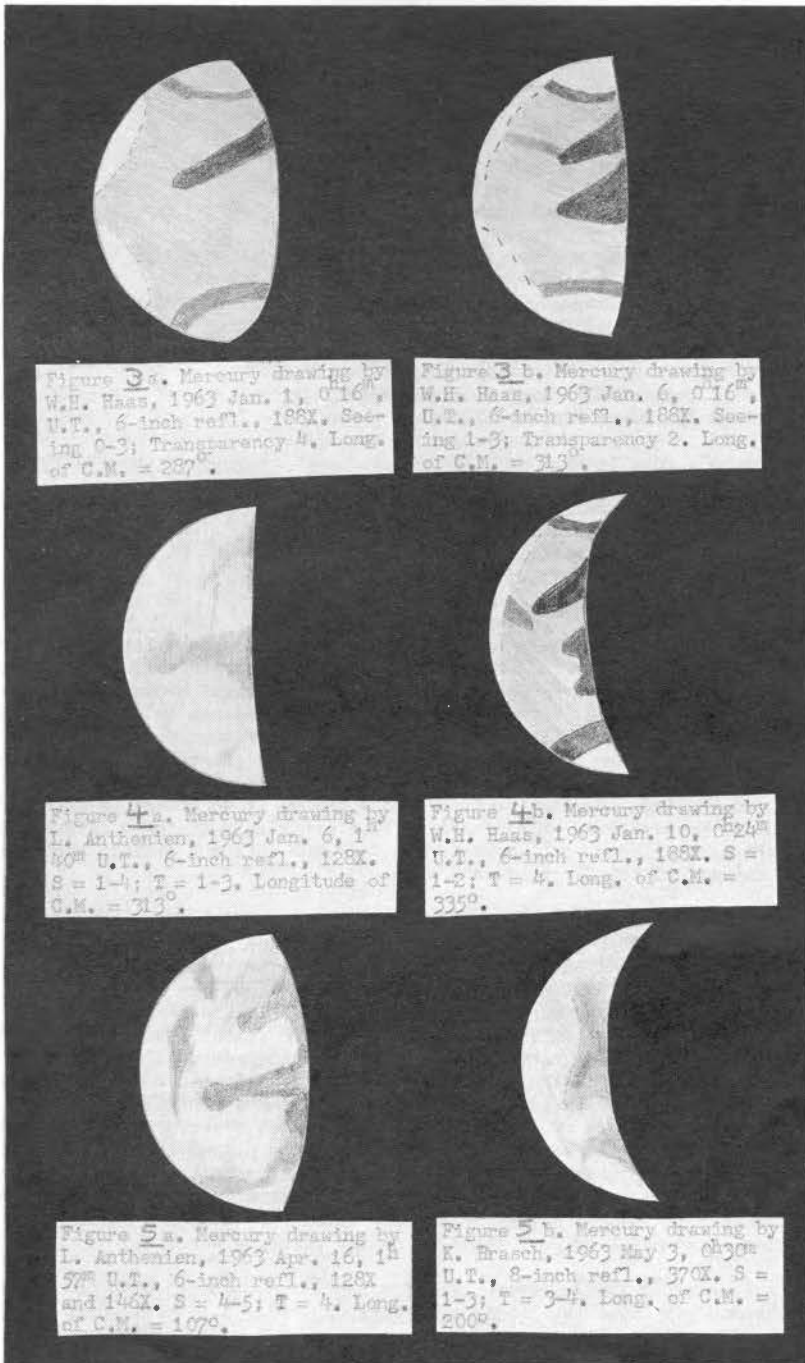 Figure 3a. Mercury drawing by
W.H. Haas, 1963 Jan. 1, 0ʰ16ᵐ,
U.T., 6-inch refl., 188X. See-
ing 0-3; Transparency 4. Long.
of C.M. = 287°.
Figure 3 b. Mercury drawing by
W.H. Haas, 1963 Jan. 6, 0ʰ16ᵐ,
U.T., 6-inch refl., 188X. See-
ing 1-3; Transparency 2. Long.
of C.M. = 313°.
Figure 4a. Mercury drawing by
L. Anthenien, 1963 Jan. 6, 1ʰ
40ᵐ U.T., 6-inch refl., 128X.
S = 1-4; T = 1-3. Longitude of
C.M. = 313°.
Figure 4b. Mercury drawing by
W.H. Haas, 1963 Jan. 10, 0ʰ24ᵐ
U.T., 6-inch refl., 188X. S =
1-2; T = 4. Long. of C.M. =
335°.
Figure 5a. Mercury drawing by
L. Anthenien, 1963 Apr. 16, 1ʰ
57ᵐ U.T., 6-inch refl., 128X
and 146X. S = 4-5; T = 4. Long.
of C.M. = 107°.
Figure 5 b. Mercury drawing by
K. Brasch, 1963 May 3, 0ʰ30ᵐ
U.T., 8-inch refl., 370X. S =
1-3; T = 3-4. Long. of C.M. =
200°.